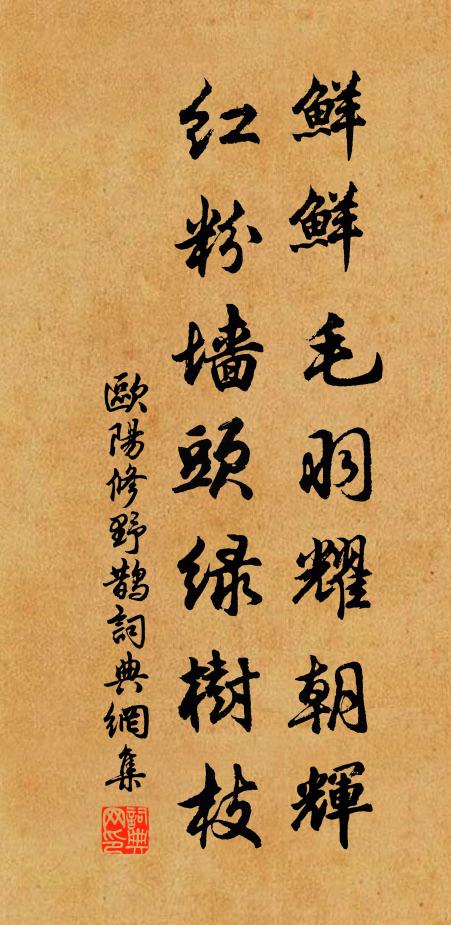 鮮鮮毛羽耀朝輝
红粉墙頭绿樹枝
歐陽修野鵲詞典網集
詞典网印